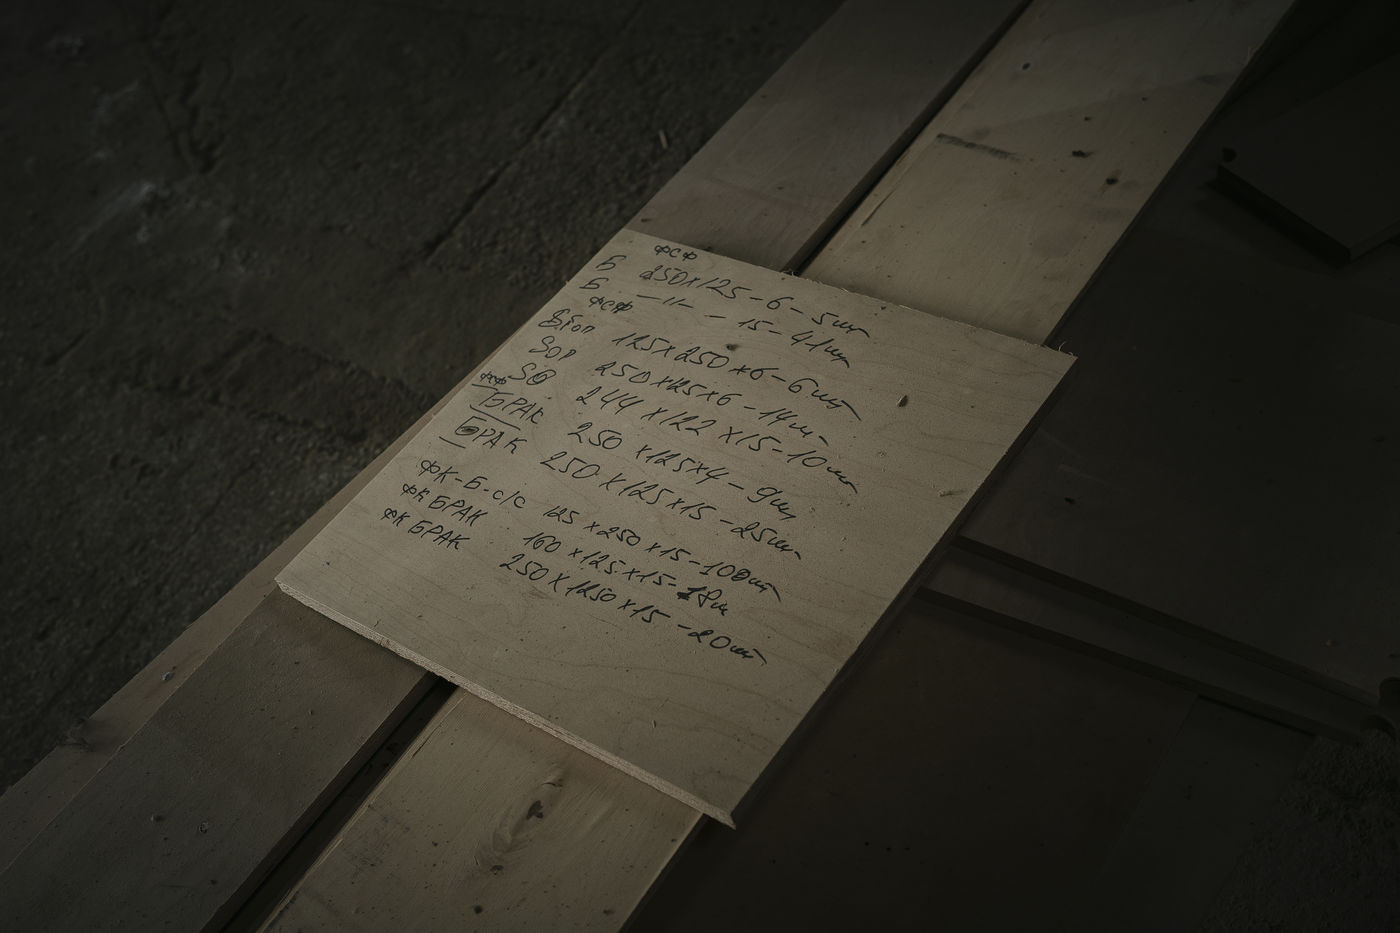 ФСФ
Б 250х125-6-5шт
Б —//— - 15-41шт
ФСФ
125х250х6-6шт
SОР 250х125х6-14шт
ФСФ 244х122х15-10шт
БРАК 250х125х4-9шт
БРАК 250х125х15-25шт
ФК-Б-с/с 125х250х15-100шт
ФК БРАК 160х125х15-18ш
ФК БРАК 250х1250х15-20шт